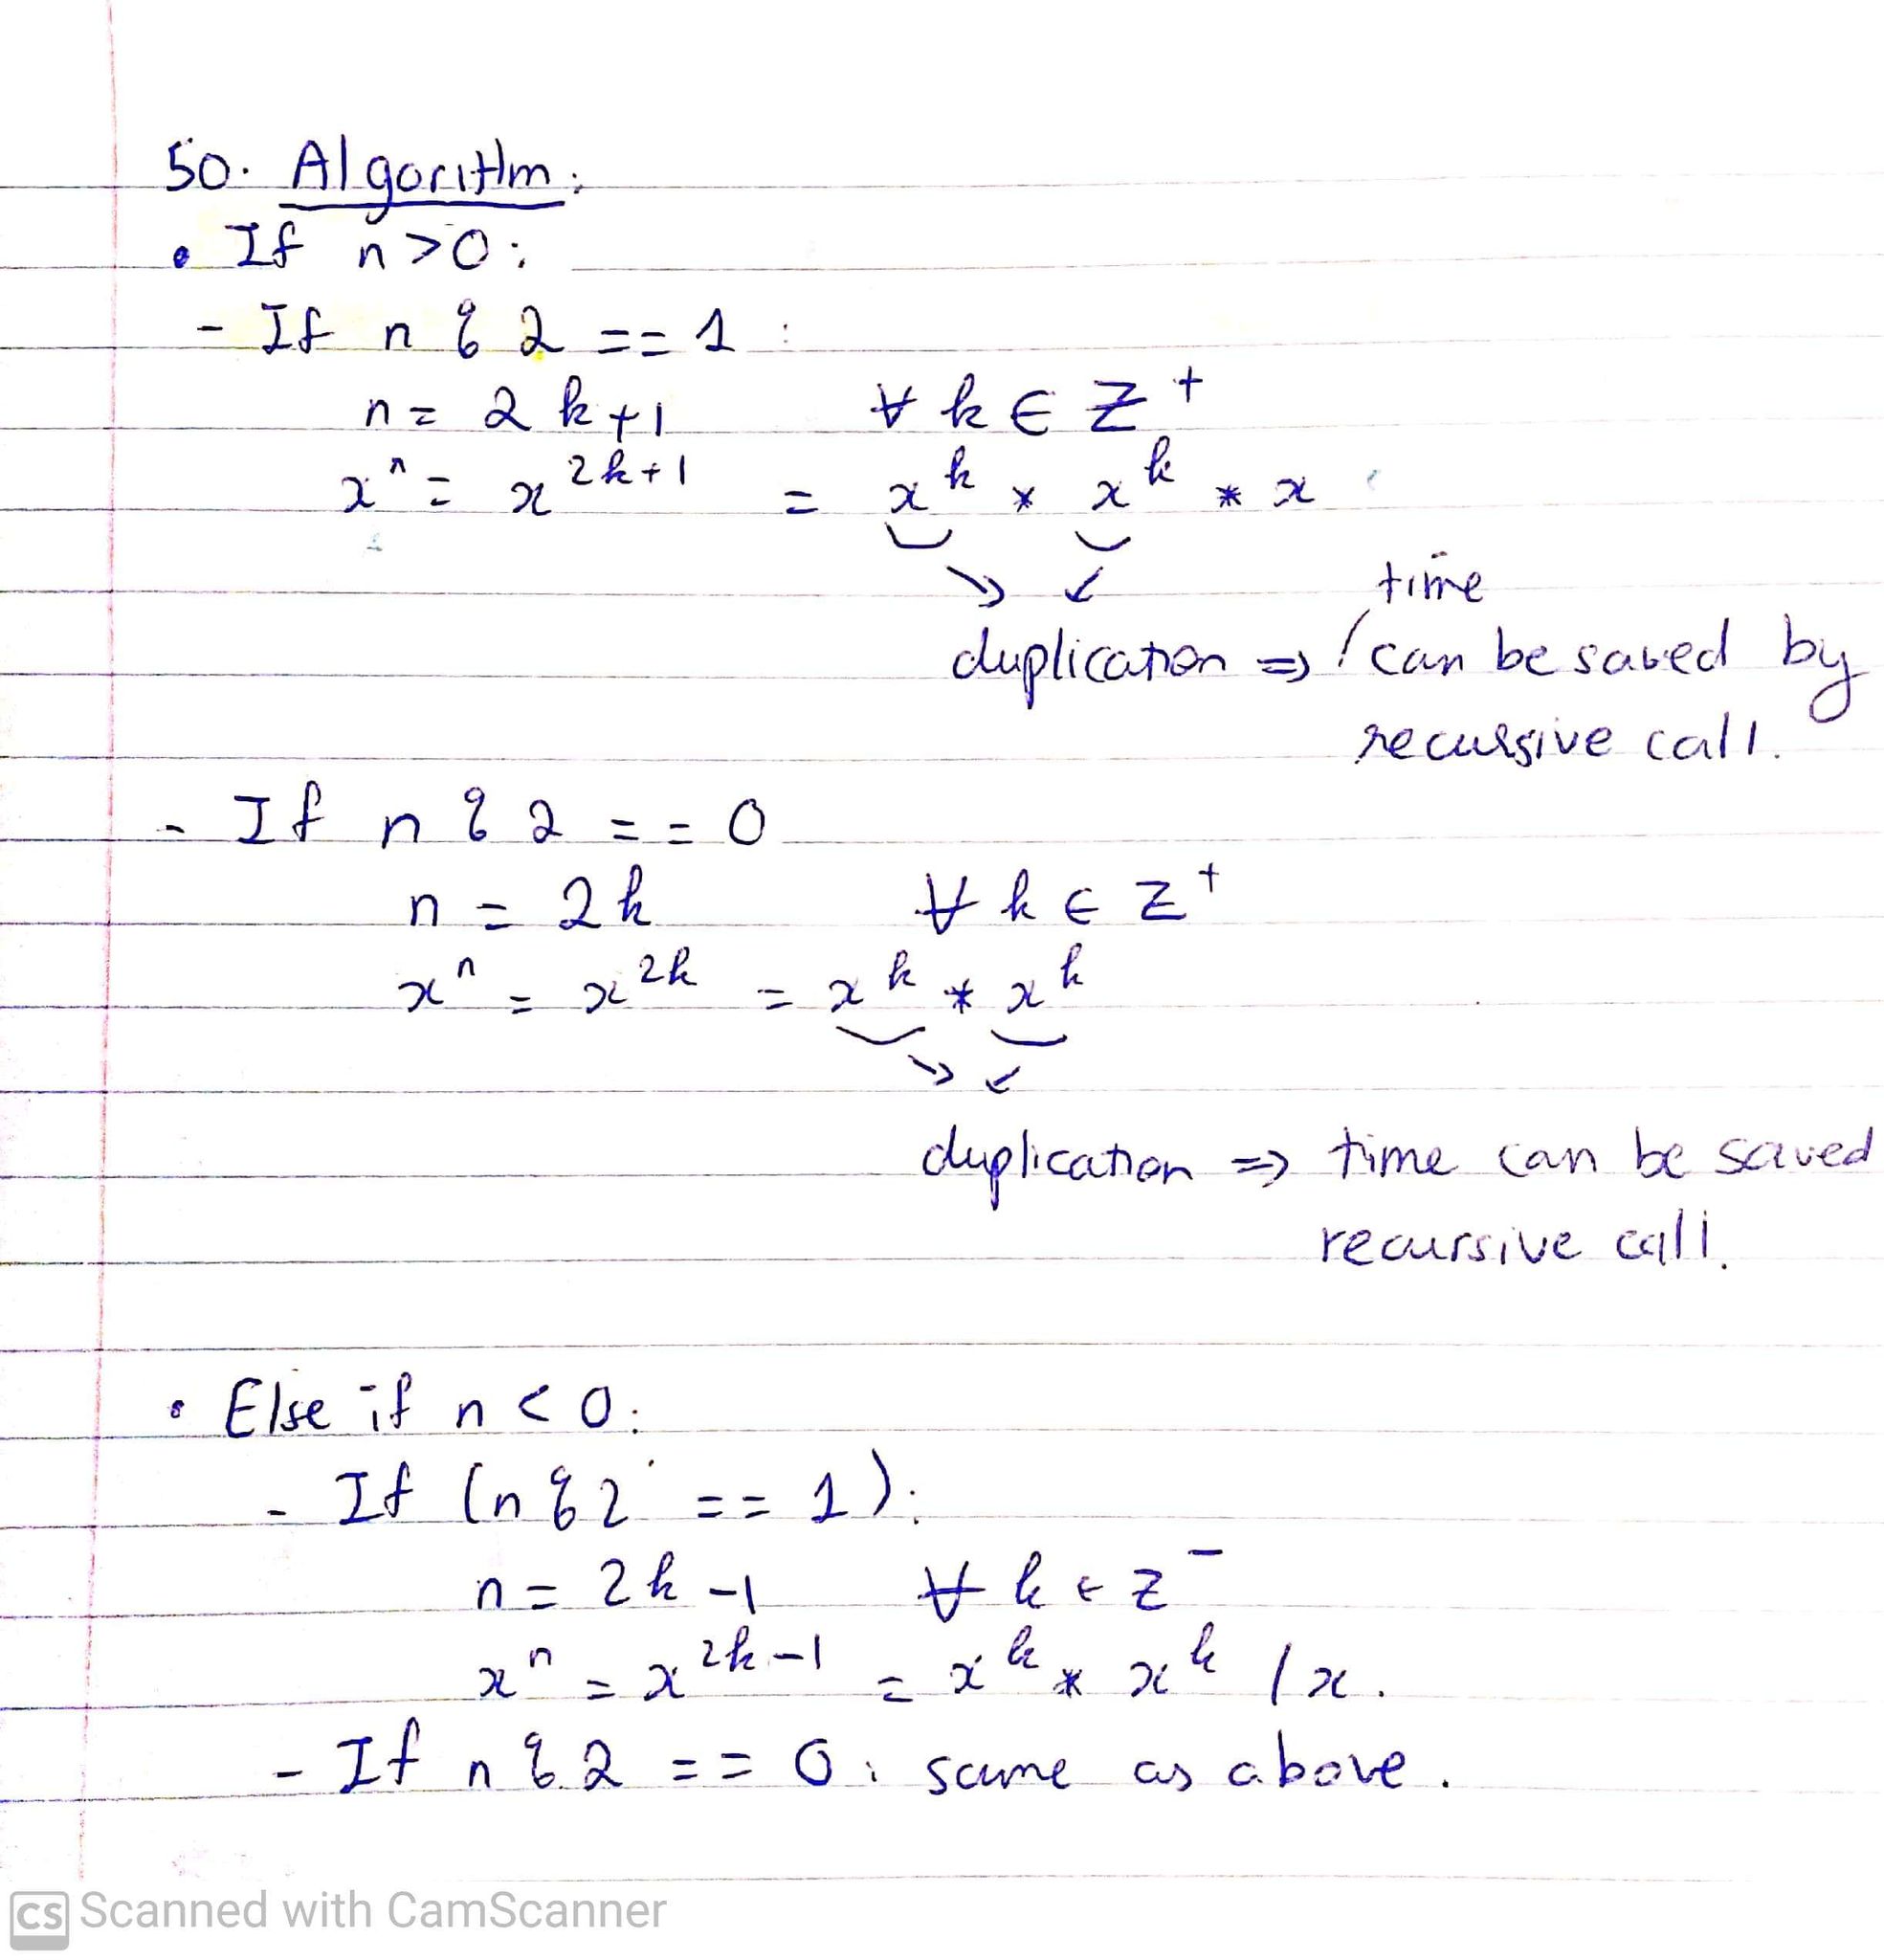 50. Algorithm:
• If n>0:
- If n % 2 == 1 :
n = 2k+1 ∀ k ∈ Z⁺
xⁿ = x²ᵏ⁺¹ = xᵏ * xᵏ * x
time
duplication ⇒ / can be saved by
recursive call.
- If n % 2 == 0
n = 2k ∀ k ∈ Z⁺
xⁿ = x²ᵏ = xᵏ * xᵏ
duplication ⇒ time can be saved
recursive call.
• Else if n < 0:
- If (n % 2 == 1):
n = 2k-1 ∀ k ∈ Z⁻
xⁿ = x²ᵏ⁻¹ = xᵏ * xᵏ / x.
- If n % 2 == 0: same as above.
CS Scanned with CamScanner